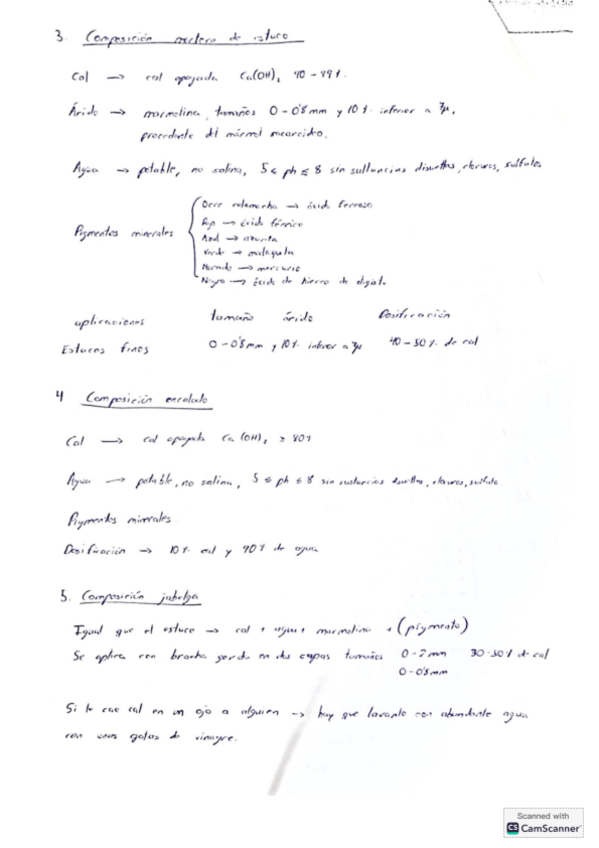 3. Composición mortero de estuco
Cal → cal apagada Ca(OH)2 40 - 49%.
Árido → marmolina, tamaños 0-0'8mm y 10% inferior a 7μ,
procedente del mármol sacaroideo.
Agua → potable, no salina, 5 ≤ ph ≤ 8 sin sustancias disueltas, cloruros, sulfatos.
Pigmentos minerales
Ocre → óxido ferroso
Rojo → óxido férrico
Azul → azurita
Verde → malaquita
→ mercurio
Negro → óxido de hierro de
aplicaciones tamaño árido Dosificación
Estucos finos 0-0'8mm y 10% inferior a 7μ 40-50% de cal
4 Composición encalado
Cal → cal apagada Ca(OH)2 ≥ 80%
Agua → potable, no salina, 5 ≤ ph ≤ 8 sin sustancias disueltas, cloruros, sulfatos.
Pigmentos minerales.
Dosificación → 10% cal y 90% de agua
5. Composición jabelga
Igual que el estuco → cal + agua + marmolina + (pigmento)
Se aplica con brocha gorda en dos capas tamaños 0-2mm 30-50% de cal
0-0'8mm
Si le cae cal en un ojo a alguien → hay que lavarlo con abundante agua
con unas gotas de vinagre.
Scanned with
CS CamScanner